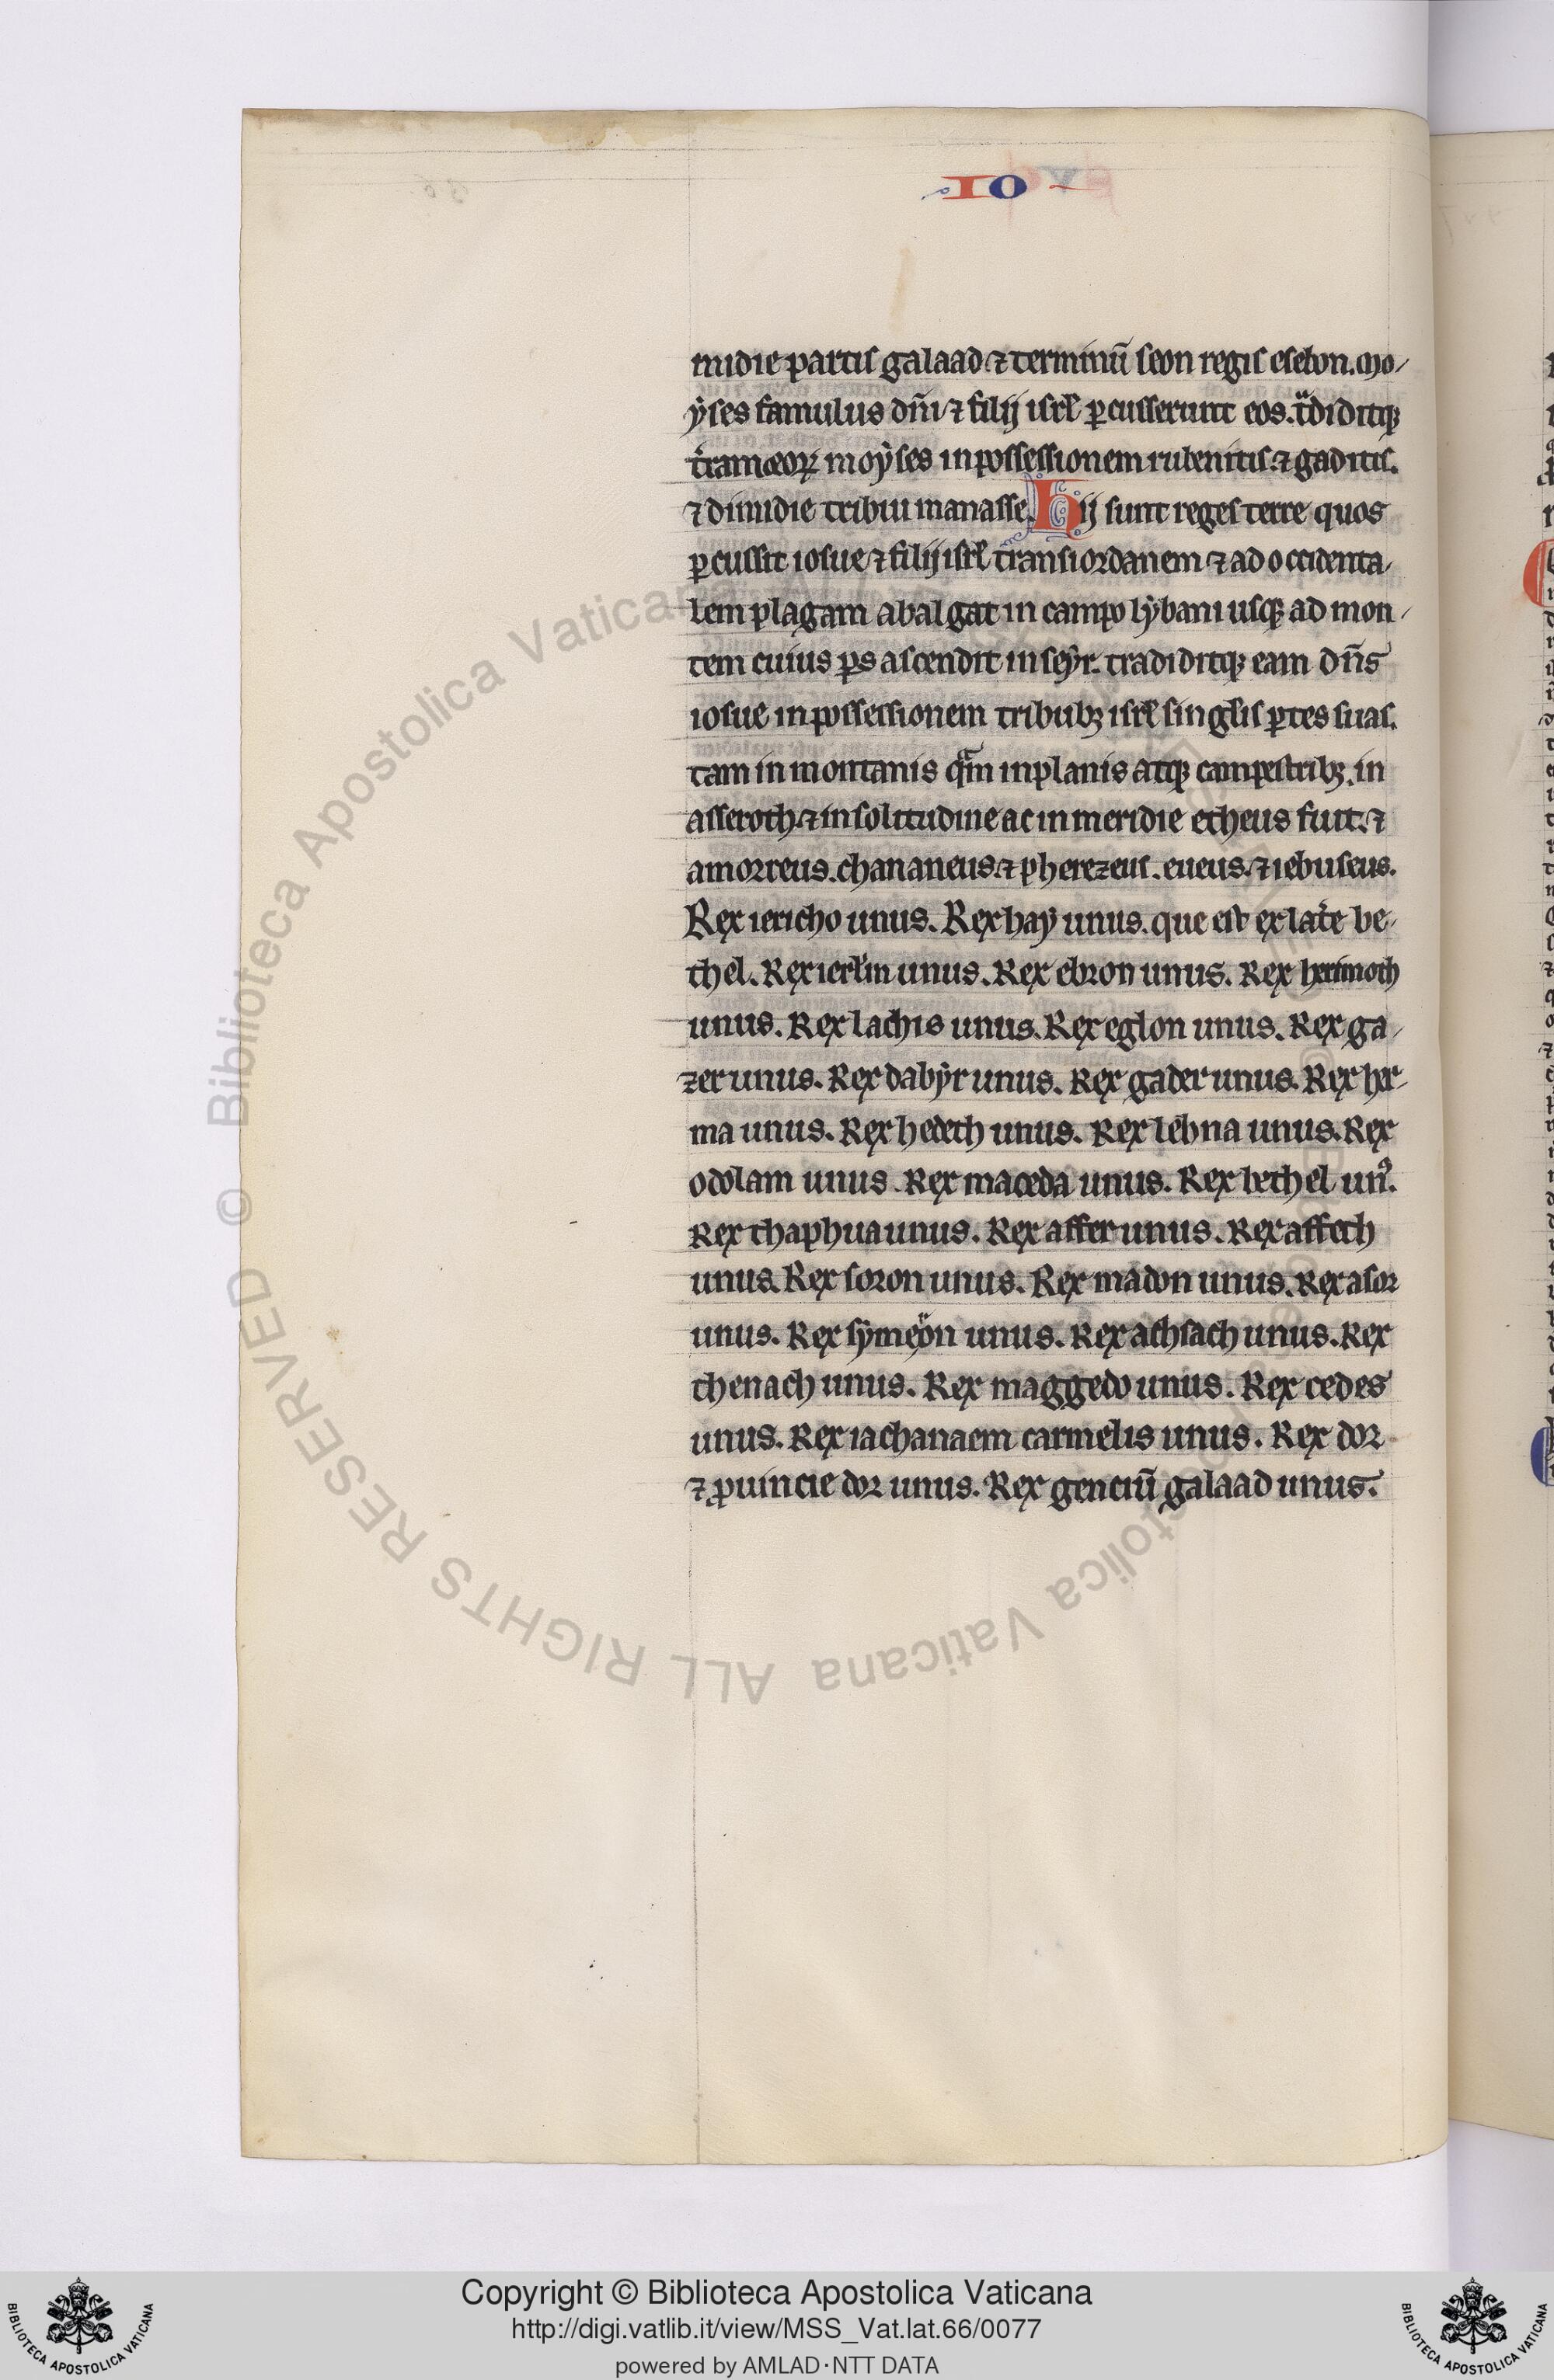 IO
midie partis galaad ⁊ terminū seon regis esebon. mo-
ẏses famulus dn̄i ⁊ filij isrł ꝑcusserunt eos. tͣdiditqꝫ
t̓ram eoꝝ moẏses in possessionem rubenitis. ⁊ gaditis.
⁊ dimidie tribui manasse. Hij sunt reges terre quos
ꝑcussit iosue ⁊ filij isrł trans iordanem ⁊ ad occidenta-
lem plagam abalgat in campo lẏbani usqꝫ ad mon-
tem cuius ꝑs ascendit in seẏr. tradiditqꝫ eam dn̄s
iosue in possessionem tribubꝫ isrł singlis ꝑtes suas.
tam in montanis qͣm in planis atqꝫ campestribꝫ. in
asseroth. ⁊ in solitudine ac in meridie etheus fuit. ⁊
amorreus. chananeus. ⁊ pherezeus. eueus. ⁊ iebuseus.
Rex iericho unus. Rex haẏ unus. que est ex late be-
thel. Rex ierłm unus. Rex ebron unus. Rex herimoth
unus. Rex lachis unus. Rex eglon unus. Rex ga-
zer unus. Rex dabẏr unus. Rex gader unus. Rex her-
ma unus. Rex hedeth unus. Rex lebna unus. Rex
odolam unus. Rex maceda unus. Rex bethel unꝰ.
Rex thaphua unus. Rex affer unus. Rex affech
unus. Rex soron unus. Rex madon unus. Rex asor
unus. Rex sẏmeon unus. Rex achsach unus. Rex
thenach unus. Rex maggedo unus. Rex cedes
unus. Rex iachanaem carmelis unus. Rex dor
⁊ ꝓuincie dor unus. Rex genciū galaad unus.
© Biblioteca Apostolica Vaticana ALL RIGHTS RESERVED
Copyright © Biblioteca Apostolica Vaticana
http://digi.vatlib.it/view/MSS_Vat.lat.66/0077
powered by AMLAD·NTT DATA
BIBLIOTECA APOSTOLICA VATICANA
BIBLIOTECA APOSTOLICA VATICANA